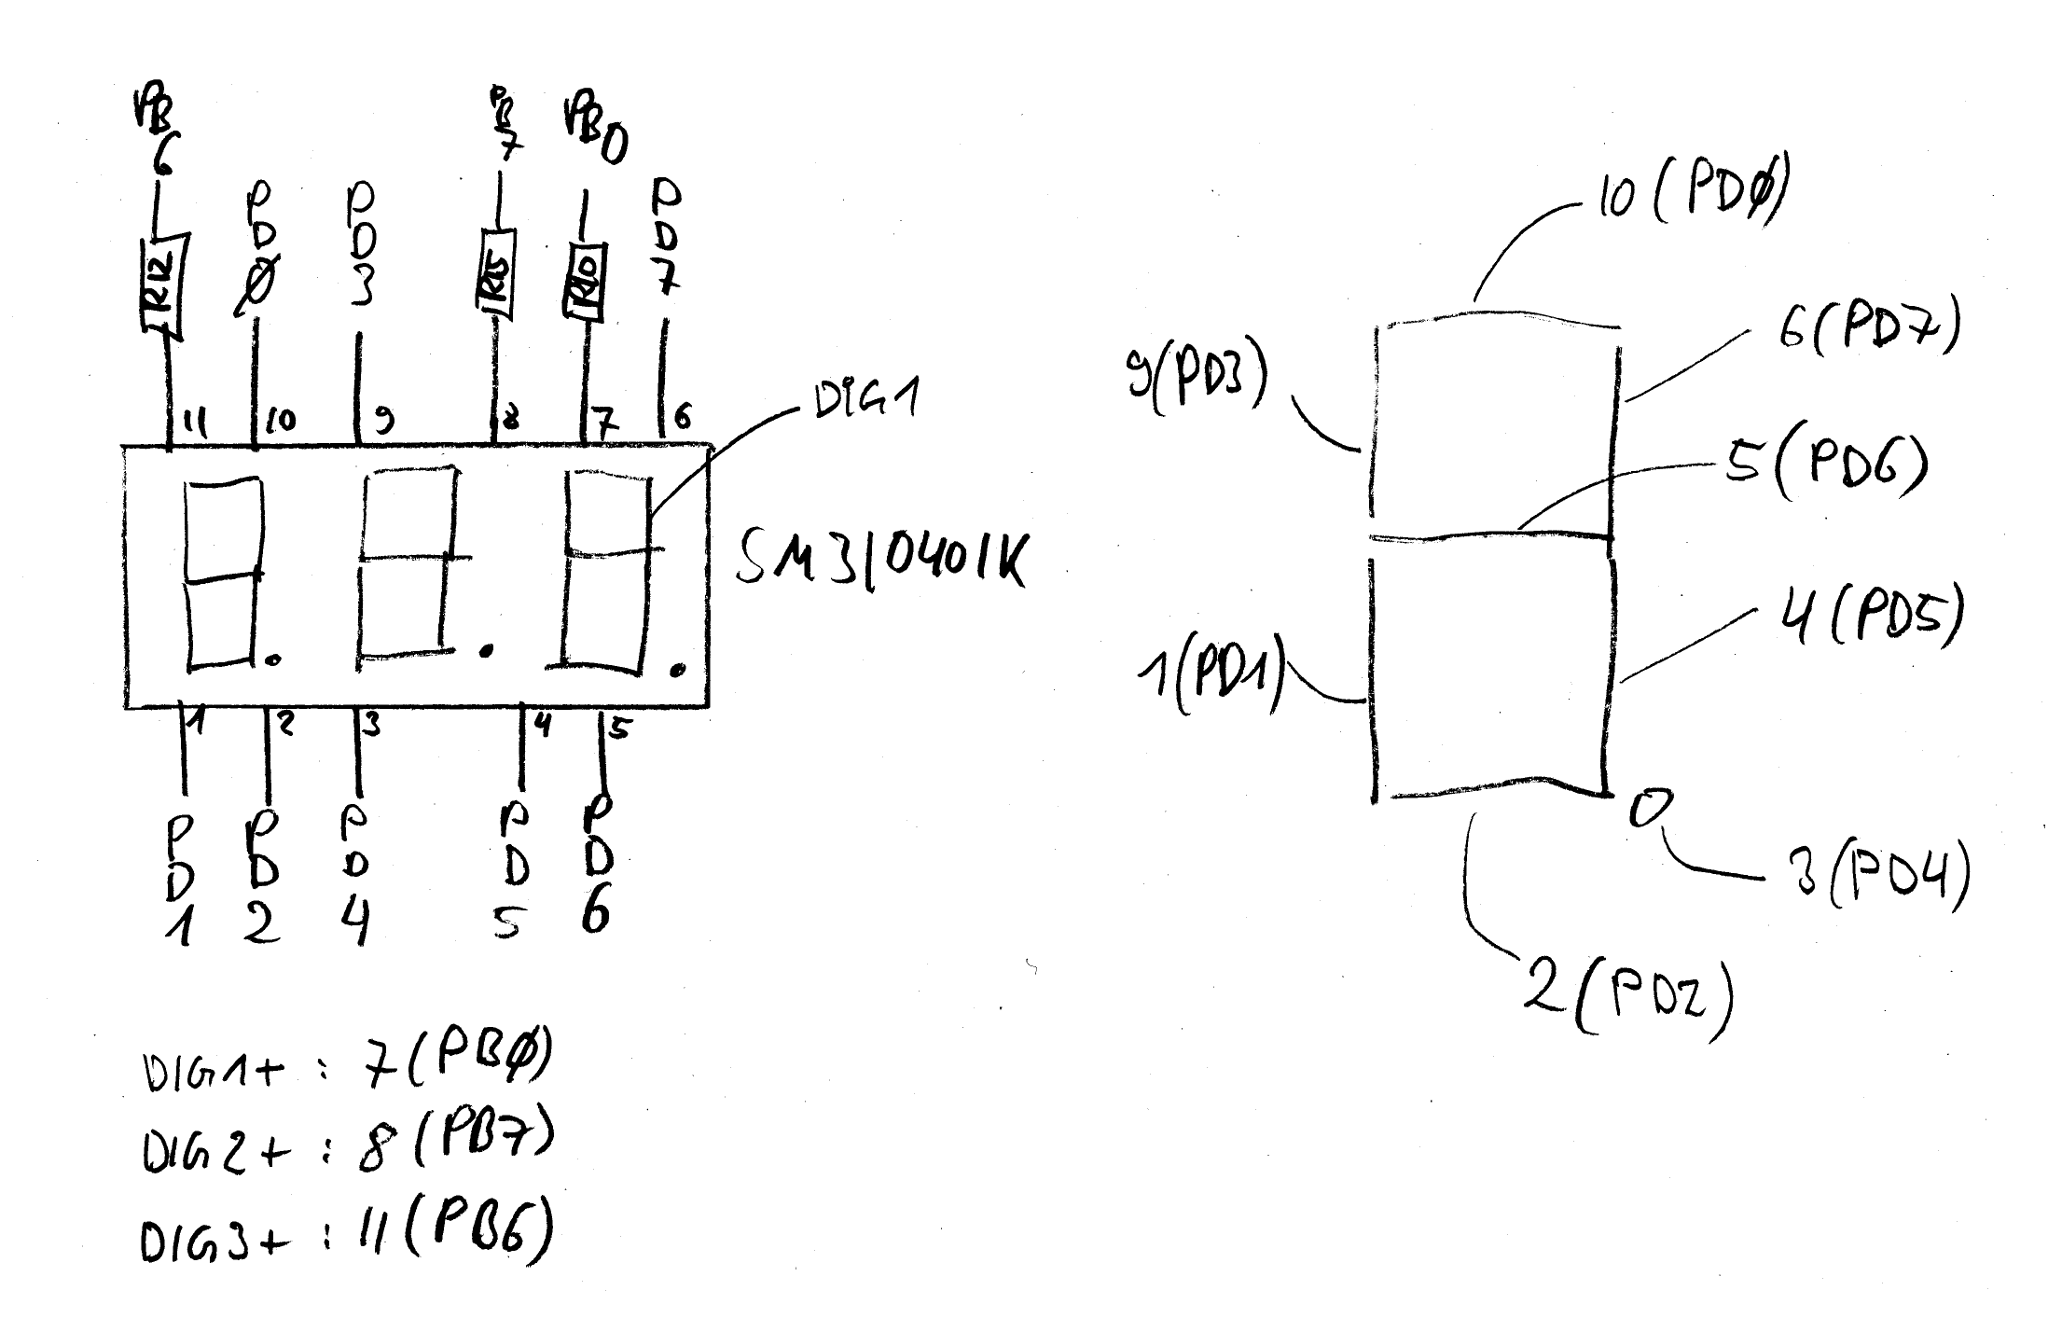 PB6
PD∅
PD3
PB7
PB0
PD7
R12
R15
R10
11
10
9
8
7
6
DIG1
SM310401K
1
2
3
4
5
PD1
PD2
PD4
PD5
PD6
DIG1+ : 7(PB∅)
DIG2+ : 8(PB7)
DIG3+ : 11(PB6)
10(PD∅)
6(PD7)
9(PD3)
5(PD6)
4(PD5)
1(PD1)
3(PD4)
2(PD2)